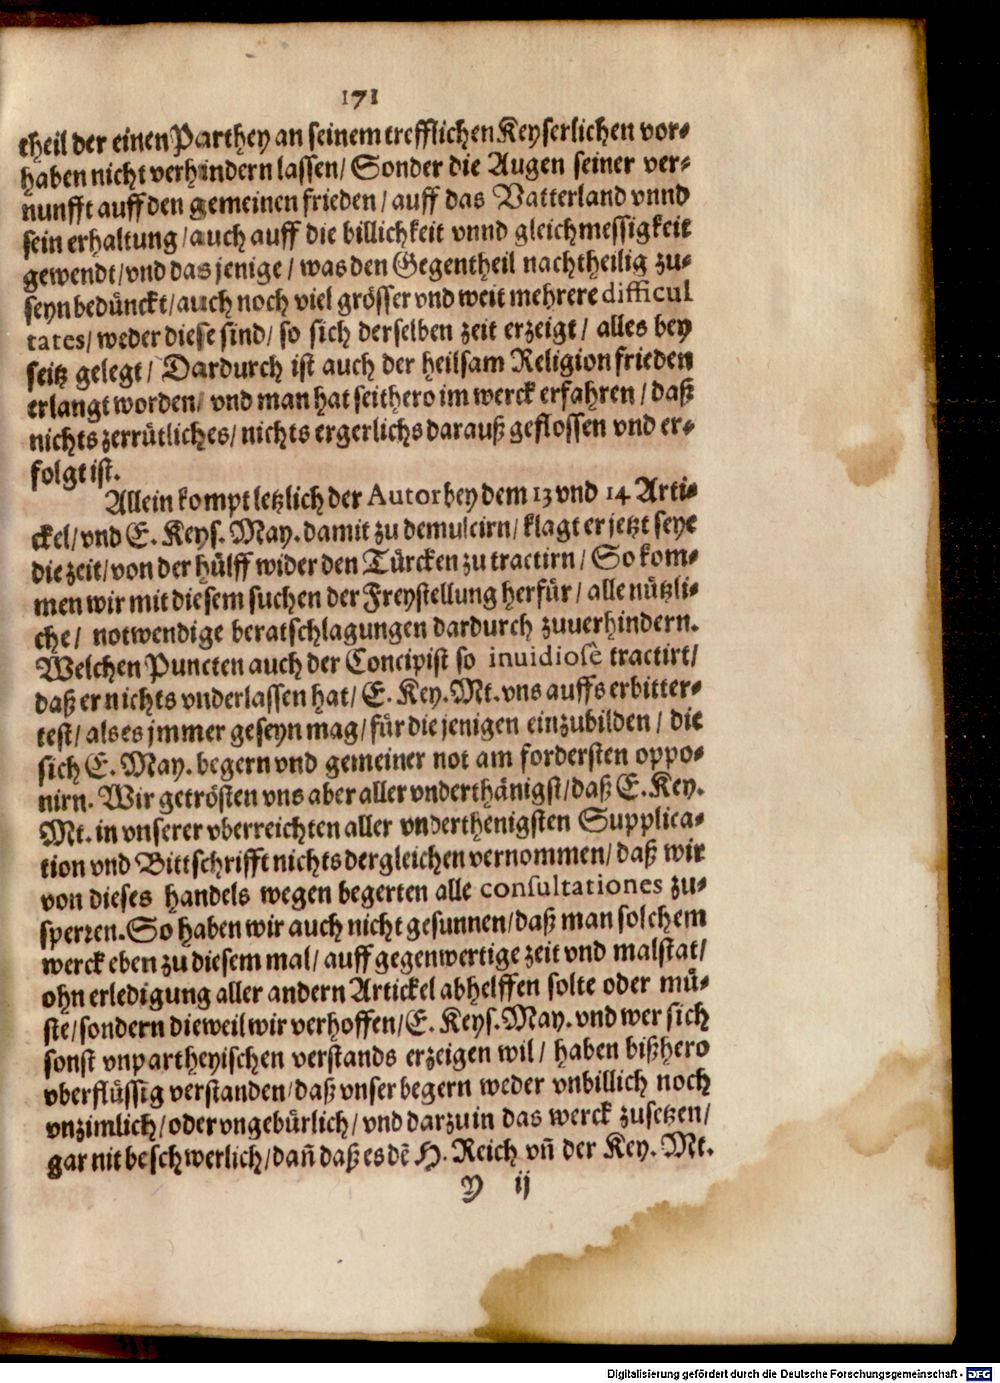 171
theil der einen Parthey an seinem trefflichen Keyserlichen vor-
haben nicht verhindern lassen/ Sonder die Augen seiner ver-
nunfft auff den gemeinen frieden / auff das Vatterland vnnd
sein erhaltung / auch auff die billichkeit vnnd gleichmessigkeit
gewendt/ vnd das jenige / was den Gegentheil nachtheilig zu-
seyn bedünckt/ auch noch viel grösser vnd weit mehrere difficul
tates/ weder diese sind/ so sich derselben zeit erzeigt / alles bey
seitz gelegt / Dardurch ist auch der heilsam Religion frieden
erlangt worden/ vnd man hat seithero im werck erfahren / daß
nichts zerrütliches/ nichts ergerlichs darauß geflossen vnd er-
folgt ist.
Allein kompt letzlich der Autor bey dem 13 vnd 14 Arti-
ckel/ vnd E. Keys. May. damit zu demulcirn/ klagt er jetzt seye
die zeit/ von der hülff wider den Türcken zu tractirn / So kom-
men wir mit diesem suchen der Freystellung herfür / alle nützli-
che / notwendige beratschlagungen dardurch zuuerhindern.
Welchen Puncten auch der Concipist so inuidiosè tractirt/
daß er nichts vnderlassen hat/ E. Key. Mt. vns auffs erbitter-
test/ als es jmmer geseyn mag/ für die jenigen einzubilden / die
sich E. May. begern vnd gemeiner not am fordersten oppo-
nirn. Wir getrösten vns aber aller vnderthänigst/ daß E. Key.
Mt. in vnserer vberreichten aller vnderthenigsten Supplica-
tion vnd Bittschrifft nichts dergleichen vernommen/ daß wir
von dieses handels wegen begerten alle consultationes zu-
sperren. So haben wir auch nicht gesunnen/ daß man solchem
werck eben zu diesem mal/ auff gegenwertige zeit vnd malstat/
ohn erledigung aller andern Artickel abhelffen solte oder mü-
ste/ sondern dieweil wir verhoffen/ E. Keys. May. vnd wer sich
sonst vnpartheyischen verstands erzeigen wil / haben bißhero
vberflüssig verstanden/ daß vnser begern weder vnbillich noch
vnzimlich/ oder vngebürlich/ vnd darzu in das werck zusetzen/
gar nit beschwerlich/ dañ daß es dẽ H. Reich vñ der Key. Mt.
Y ij
Digitalisierung gefördert durch die Deutsche Forschungsgemeinschaft - DFG